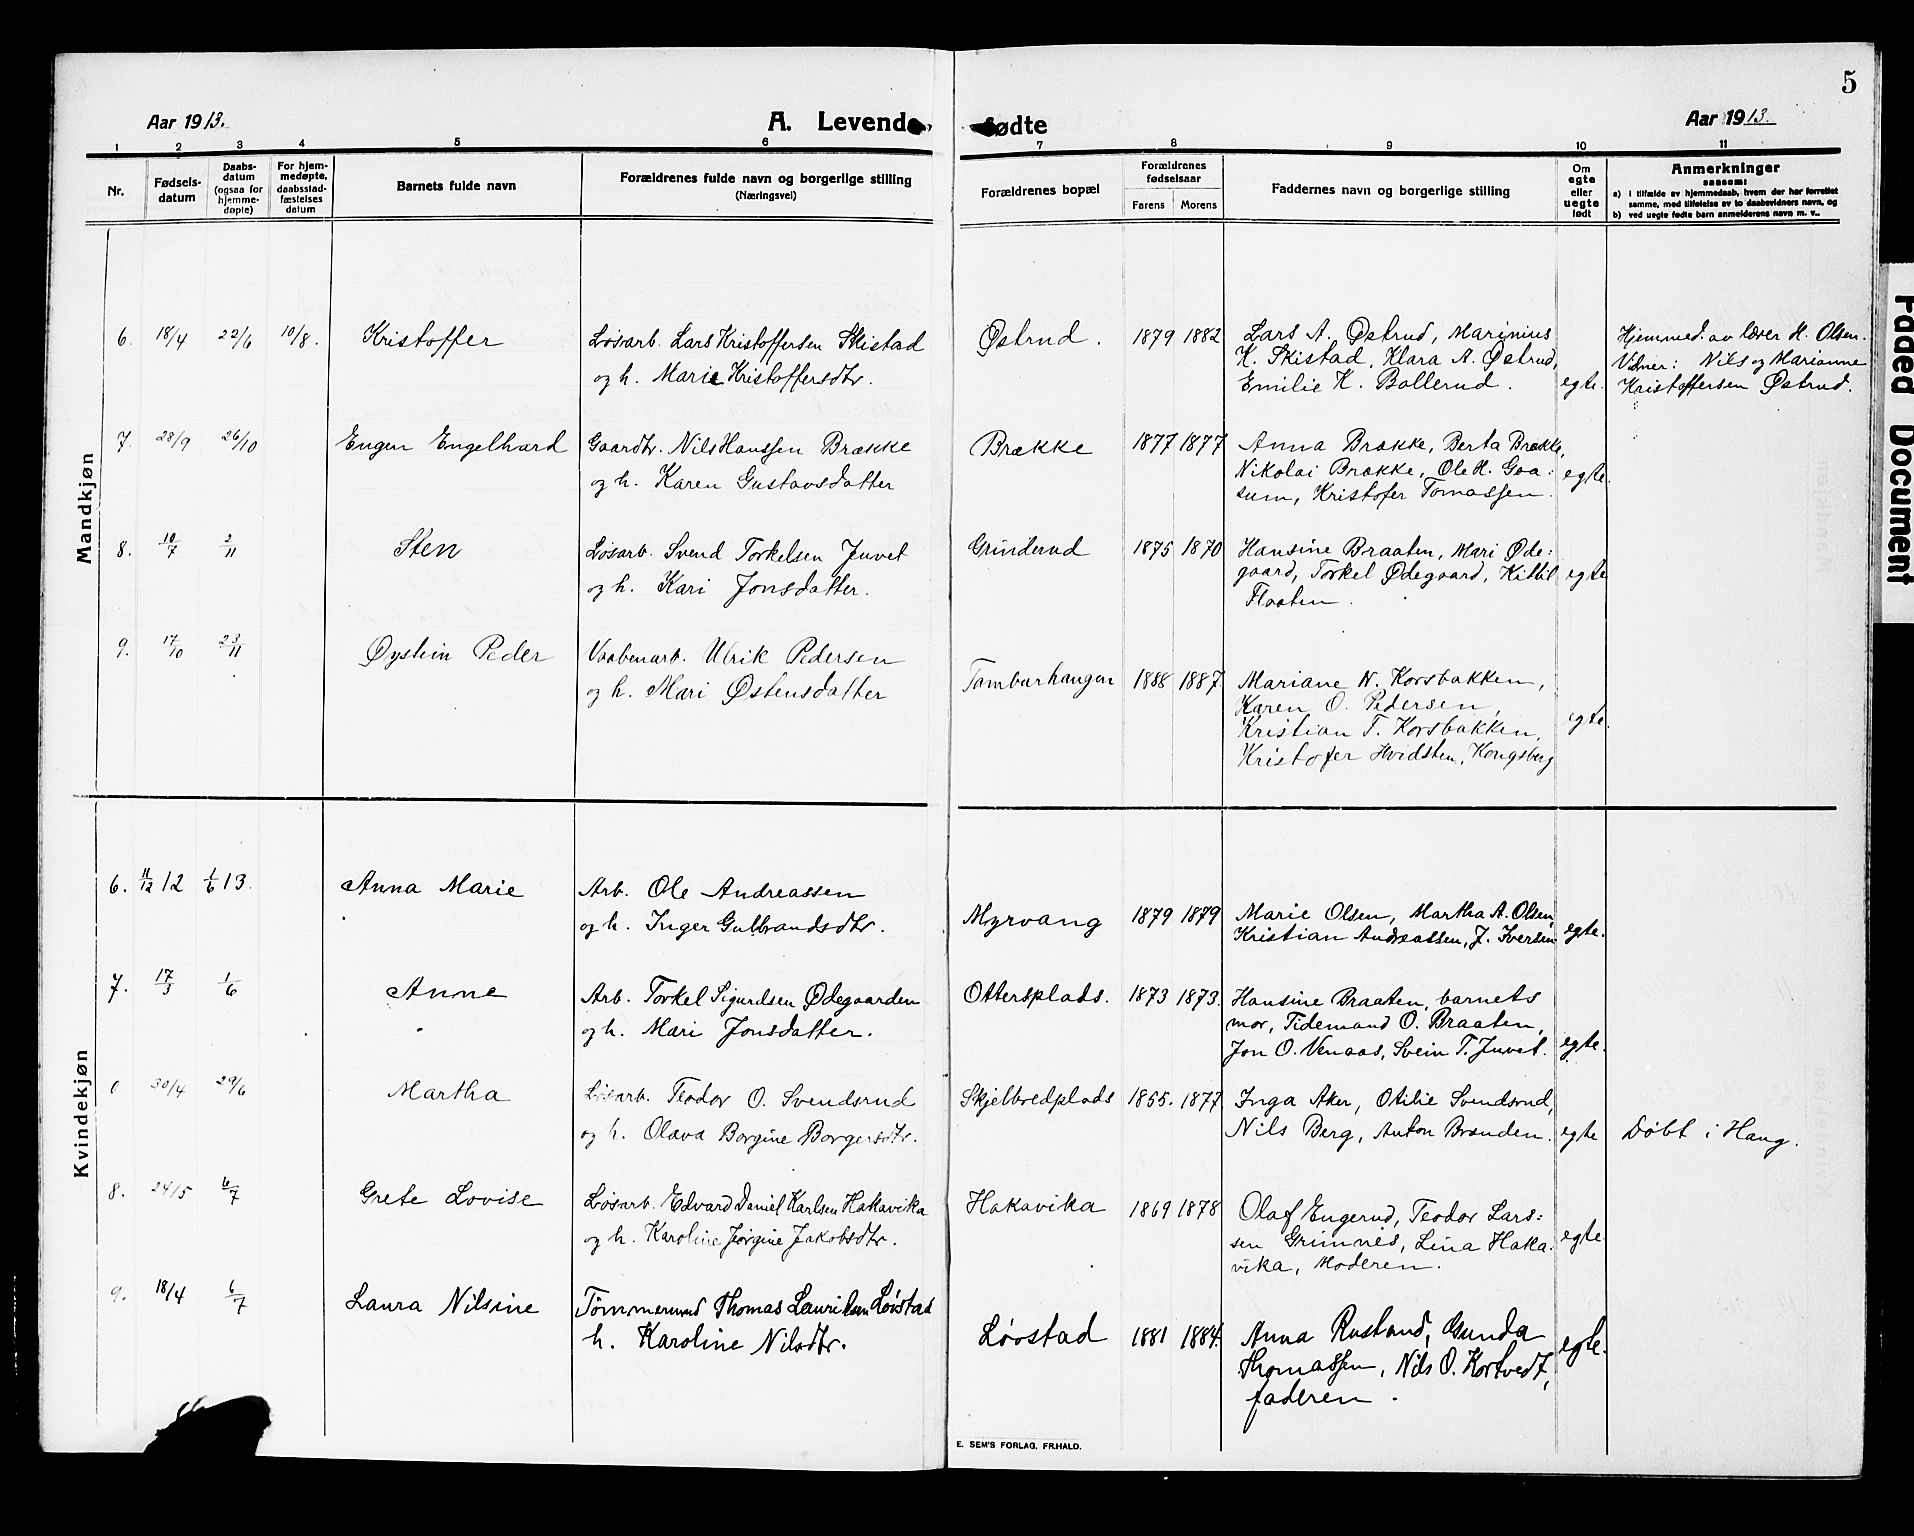 5
Aar 1913.
A. Levende
fødte
Aar 1913.
1 2 3 4 5 6 7 8 9 10 11
Nr.
Fødsels-
datum
Daabs-
datum
(ogsaa for
hjemme-
døpte)
For hjem-
medøpte,
daabsstad-
fæstelses
datum
Barnets fulde navn
Forældrenes fulde navn og borgerlige stilling
(Næringsvei)
Forældrenes bopæl
Forældrenes
fødselsaar
Farens Morens
Faddernes navn og borgerlige stilling
Om
egte
eller
uegte
født
Anmerkninger
saasom:
a) i tilfælde av hjemmedaab, hvem der har forrettet
samme, med tilføielse av to daabsvidners navn, og
b) ved uegte fødte barn anmelderens navn m. v..
Mandkjøn
6. 18/4 22/6 10/8. Kristoffer
Løsarb. Lars Kristoffersen Skistad
og h. Marie Kristoffersdtr.
Østrud. 1879 1882
Lars A. Østrud, Marinius
K. Skistad, Klara A. Østrud,
Emilie K. Bollerud. egte.
Hjemmed. av lærer H. Olsen.
Vidner: Nils og Marianne
Kristoffersen Østrud.
7. 28/9 26/10 Eugen Engelhard
Gaardbr. Nils Hanssen Brække
og h. Karen Gustavsdatter
Brække 1877 1877
Anna Brække, Berta Brække,
Nikolai Brække, Ole H. Gaa:
sum, Kristofer Tomassen. egte.
8. 10/7 2/11 Sten
Løsarb. Svend Torkelsen Juvet
og h. Kari Jonsdatter.
Grinderud 1875 1870
Hansine Braaten, Mari Øde:
gaard, Torkel Ødegaard, Kittil
Flaaten. egte
9. 17/10 23/11 Øystein Peder
Vaabenarb. Ulrik Pedersen
og h. Mari Østensdatter
Tamburhaugen 1888 1887
Mariane N. Korsbakken,
Karen O. Pedersen,
Kristian T. Korsbakken,
Kristofer Hvidsten, Kongsberg
egte.
Kvindekjøn
6. 11/12 12 1/6 13. Anna Marie
Arb. Ole Andreassen
og h. Inger Gulbrandsdtr.
Myrvang 1879 1879
Marie Olsen, Martha A. Olsen,
Kristian Andreassen, J. Iversen
egte.
7. 17/3 1/6 Anne
Arb. Torkel Sigurdsen Ødegaarden
og h. Mari Jonsdatter.
Ottersplads. 1873 1873.
Hansine Braaten, barnets
mor, Tidemand O. Braaten,
Jon O. Venaas, Svein T. Juvet. egte.
30/4 29/6 Martha
Løsarb. Teodor O. Svendsrud
og h. Olava Borgine Borgersdtr.
Skjelbredplads 1865. 1877
Inga Aker, Otilie Svendsrud,
Nils Berg, Anton Brænden. egte
Døbt i Haug.
8. 24/5 6/7 Grete Lovise
Løsarb. Edvard Daniel Karlsen Hakavika
og h. Karoline Jørgine Jakobsdtr.
Hakavika 1869 1878
Olaf Engerud, Teodor Lars:
sen Grimnes, Lina Haka:
vika, Moderen. egte
9. 18/4 6/7 Laura Nilsine
Tømmermd Thomas Lauridsen Løvstad
h. Karoline Nilsdtr.
Løvstad 1881 1884.
Anna Rustand, Gunda
Thomassen, Nils O. Kortvedt,
faderen. egte.
E. SEM'S FORLAG, FR.HALD.
Faded Document